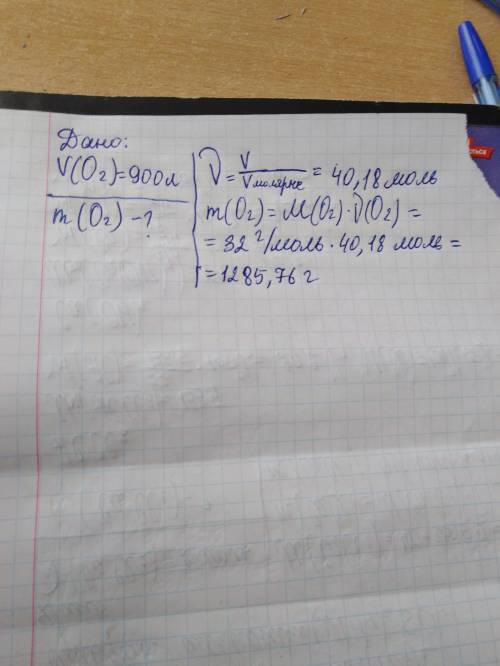 Дано:
V(O₂)=900л
m(O₂)-?
ν = V/Vмолярне = 40,18 моль
m(O₂) = M(O₂)·ν(O₂) =
= 32 г/моль · 40,18 моль =
= 1285,76 г